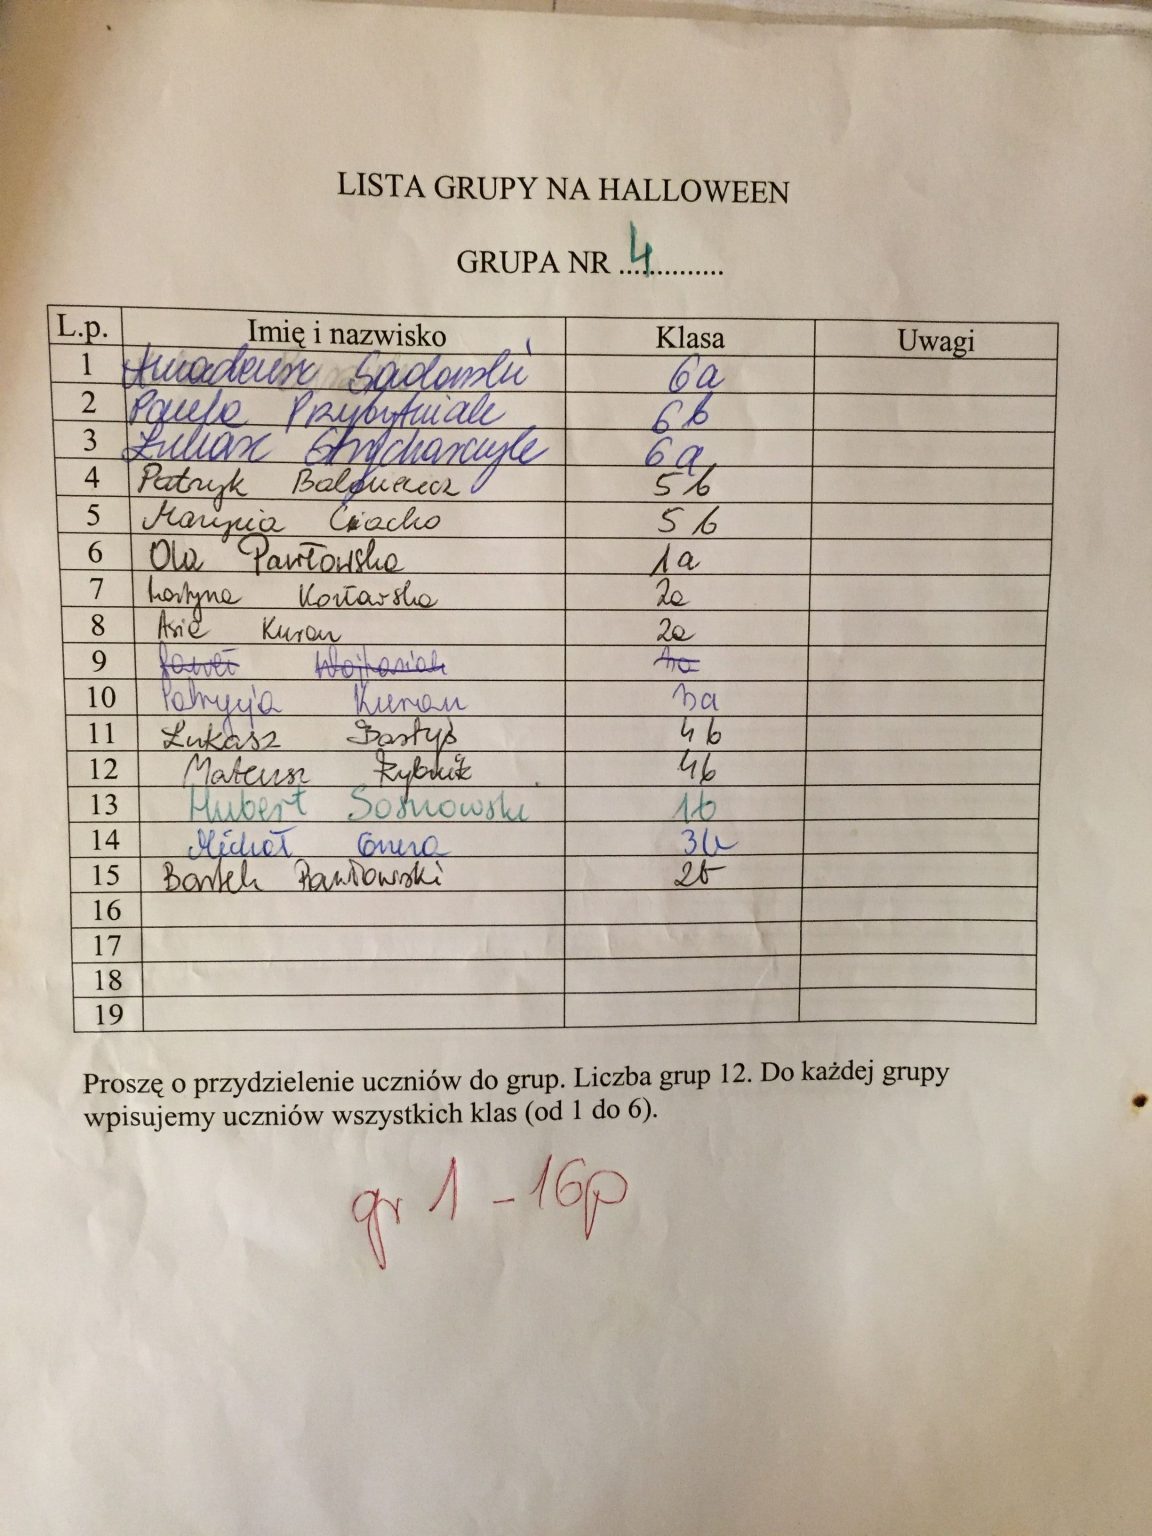 LISTA GRUPY NA HALLOWEEN
GRUPA NR ...4...........
L.p. Imię i nazwisko Klasa Uwagi
1 Amadeusz Sadowski 6a
2 Paula Przybytniak 6b
3 Łukasz 6a
4 Patryk 5b
5 Marysia Ciacho 5b
6 Ola Pawłowska 1a
7 2a
8 Asia Kuran 2a
9 Paweł
10 Patrycja 3a
11 Łukasz Bastyś 4b
12 Mateusz 4b
13 Hubert Sosnowski 1b
14 Michał 3b
15 Bartek Pawłowski 2b
16
17
18
19
Proszę o przydzielenie uczniów do grup. Liczba grup 12. Do każdej grupy
wpisujemy uczniów wszystkich klas (od 1 do 6).
gr 1 - 16p